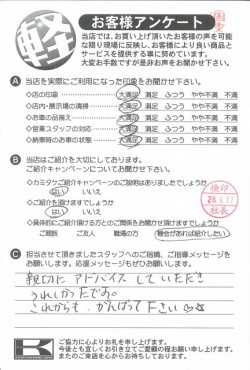 軽
お客様アンケート
当店では、お買い上げ頂いたお客様の声を可能
な限り現場に反映し、お客様により良い商品と
サービスを提供する事に努めています。
大変お手数ですが是非お声をお聞かせ下さい。
A 当店を実際にご利用になった印象をお聞かせ下さい。
◇店の印象 大満足 満足 ふつう やや不満 不満
◇店内・展示場の清掃 大満足 満足 ふつう やや不満 不満
◇お車の品揃え 大満足 満足 ふつう やや不満 不満
◇営業スタッフの対応 大満足 満足 ふつう やや不満 不満
◇納車時のお車の状態 大満足 満足 ふつう やや不満 不満
B 当店はご紹介を大切にしております。
ご紹介キャンペーンについてお聞かせ下さい。
◇カミタケご紹介キャンペーンのご説明はありましたでしょうか
はい いいえ
◇ご紹介を頂けますでしょうか
はい いいえ
◇具体的にご紹介頂ける方とのご関係をお聞かせ頂けますでしょうか
ご親族 ご友人 職場の方 機会があれば紹介したい
検印
28.6.17
社長
C 担当させて頂きましたスタッフへのご指摘、ご指導メッセージを
お願いします。応援メッセージもぜひお願いします。
親切に アドバイス していただき
うれしかったです。
これからも がんばって下さい
K
ご協力に心よりお礼を申し上げます。
今後とも宜しくお引き立てご愛顧の程お願い申し上げます。
またのご来店を心からお待ちしております。